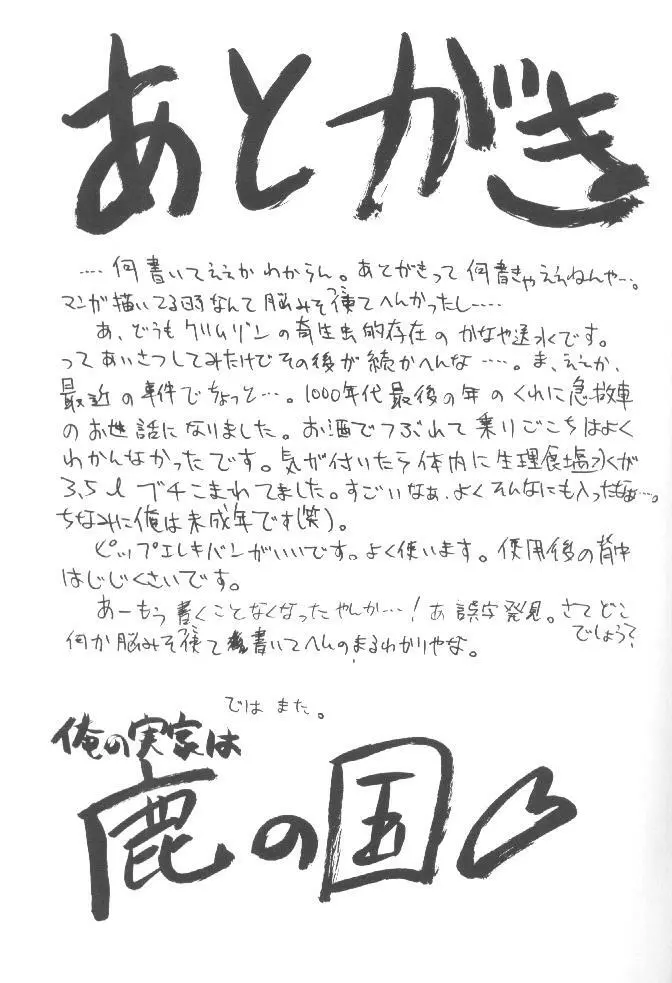 あとがき
‥‥何書いてええかわからん。あとがきって何書きゃええねんや…。
マンガ描いてる時なんて脳みそ使てへんかったし‥‥
あ、どうもクリムゾンの寄生虫的存在のかなや送水です。
ってあいさつしてみたけどその後が続かへんな‥‥。ま、ええか、
最近の事件でちょっと…。1000年代最後の年のくれに急救車
のお世話になりました。お酒でつぶれて乗りごこちはよく
わかんなかったです。気が付いたら体内に生理食塩水が
3,5ℓブチこまれてました。すごいなぁ、よくそんなにも入ったなぁ…。
ちなみに俺は未成年です(笑)。
ピップエレキバンがいいです。よく使います。使用後の背中
はじじくさいです。
あーもう書くことなくなったやんか…！あ誤字発見。さてどこ
でしょう？
何か脳みそ使て書いてへんのまるわかりやな。
ではまた。
俺の実家は
鹿の国